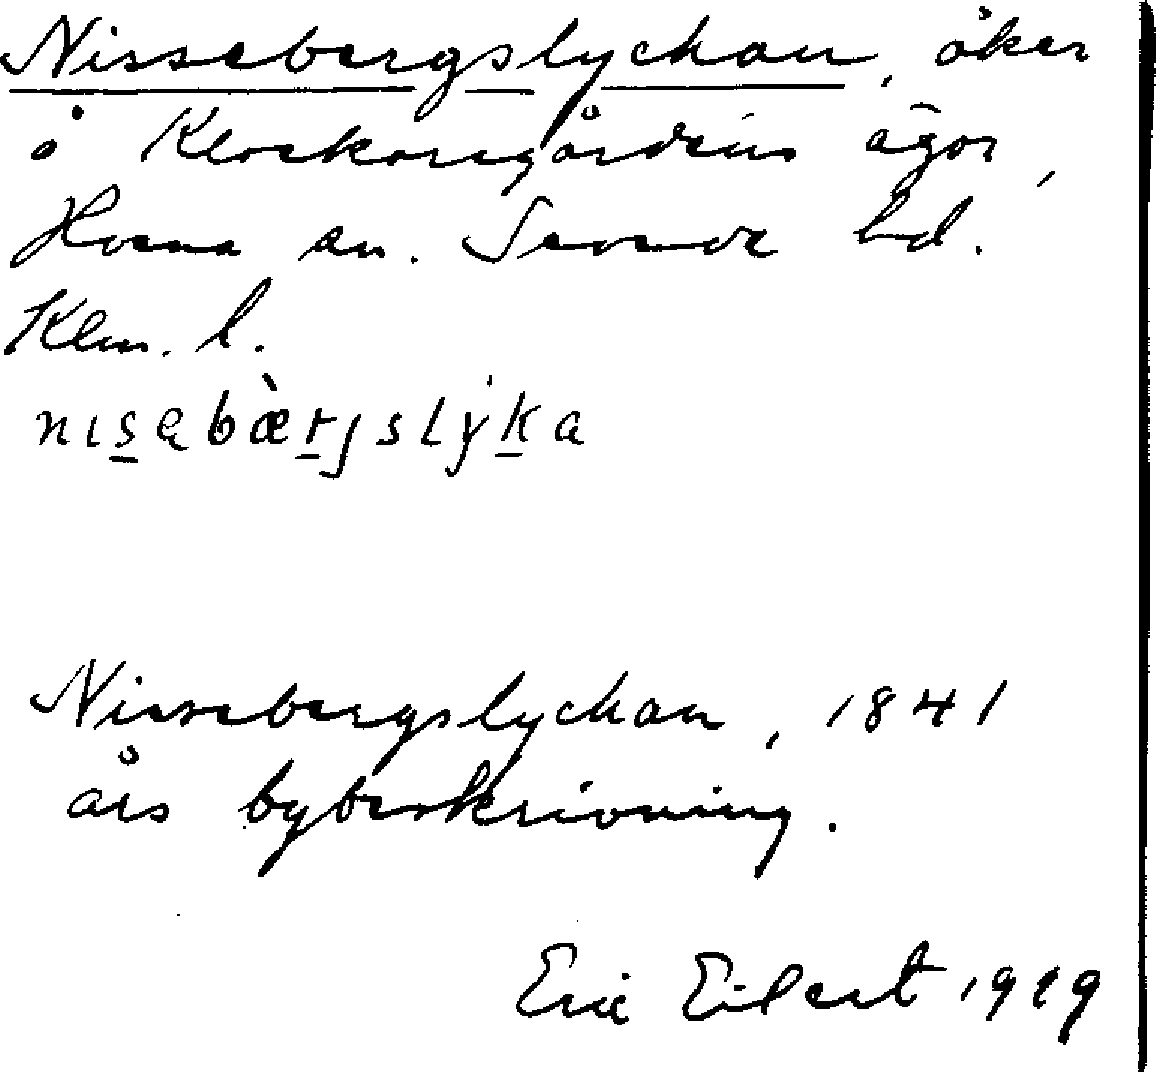 Nissebergslyckan, åker
å Klockaregårdens ägor,
Hvena sn. Sevede hd.
Klm. l.
nıs̲ębæ̀r̲jslýk̲a
Nissebergslyckan, 1841
års bybeskrivning.
Eric Eilert 1919